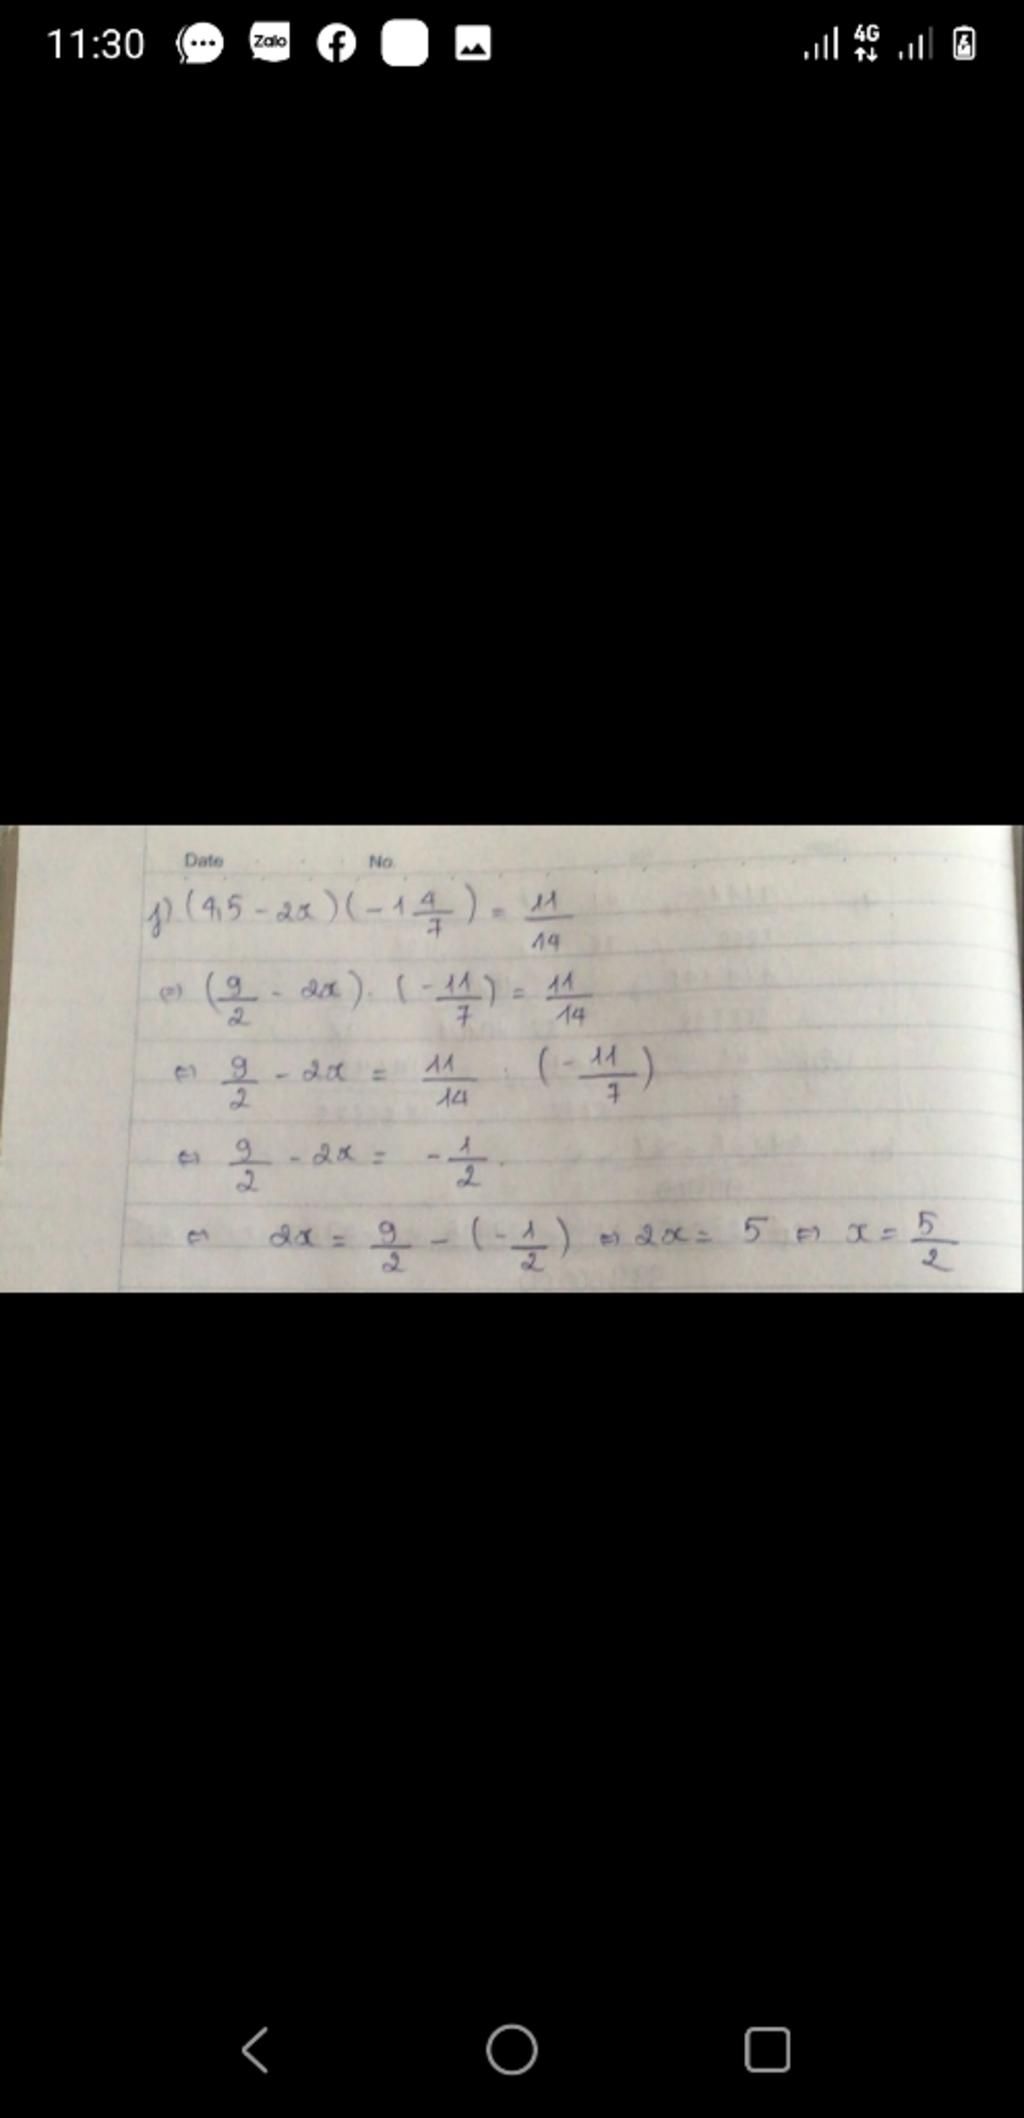 11:30 Zalo 4G
Date No.
f) (4,5 - 2x)(-1 4/7) = 11/14
⇔ (9/2 - 2x) . (-11/7) = 11/14
⇔ 9/2 - 2x = 11/14 : (-11/7)
⇔ 9/2 - 2x = -1/2
⇔ 2x = 9/2 - (-1/2) ⇔ 2x = 5 ⇔ x = 5/2